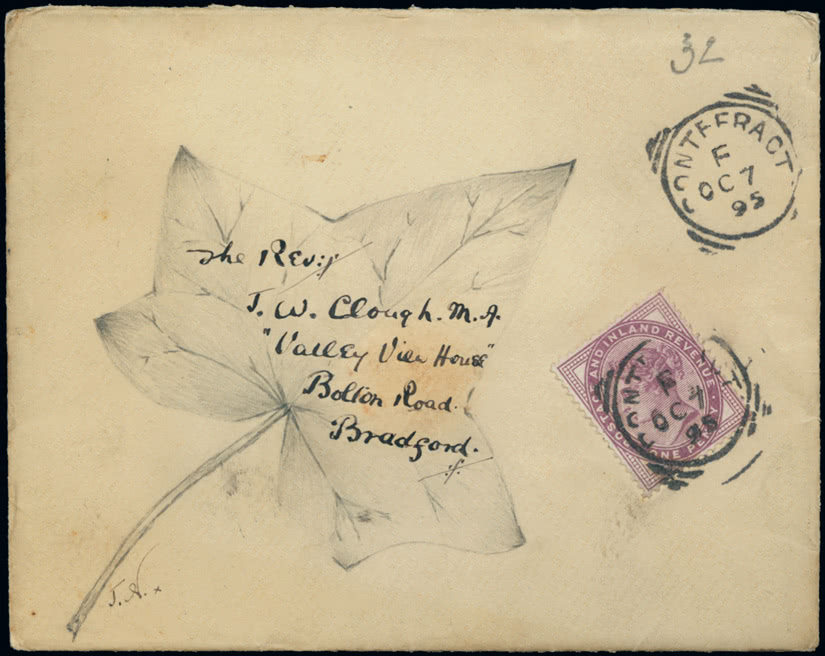 32
PONTEFRACT
E
OC 7
95
The Rev:
J. W. Clough. M.A.
"Valley View House"
Bolton Road.
Bradford.
POSTAGE AND INLAND REVENUE
ONE PENNY
E
OC 7
95
J.A.